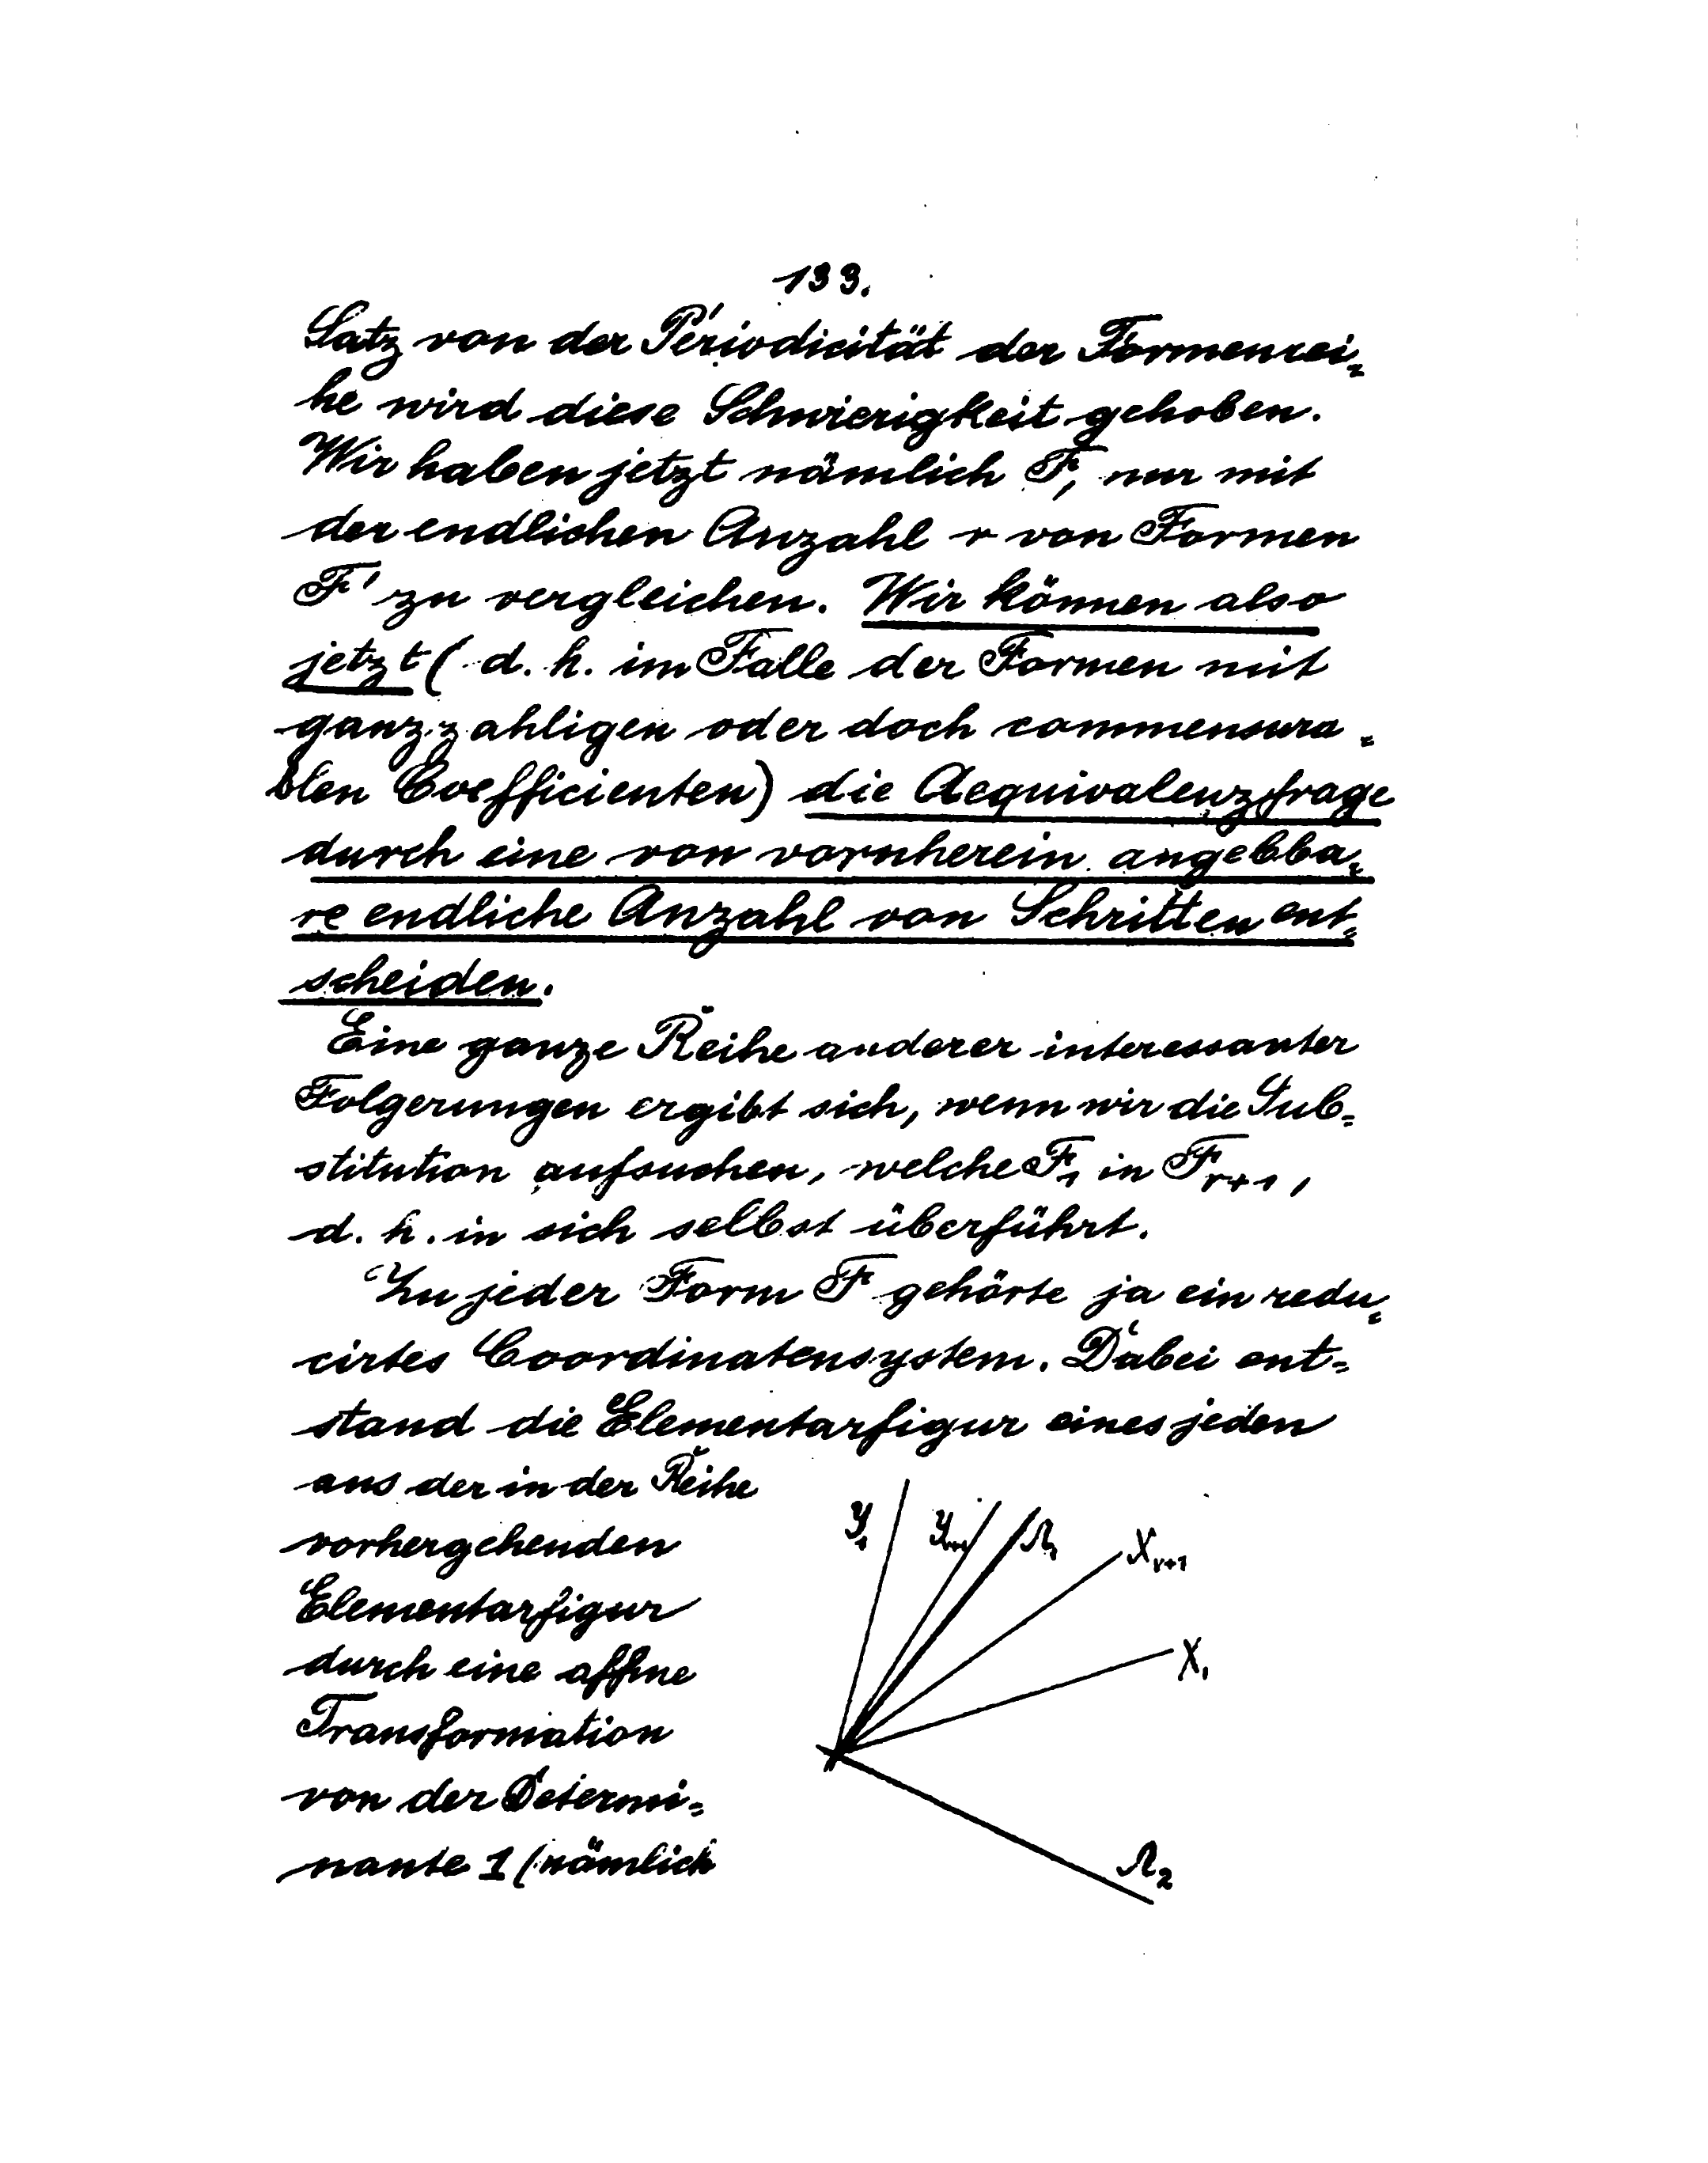 133.
Satz von der Periodicität der Formenrei=
he wird diese Schwierigkeit gehoben.
Wir haben jetzt nämlich F₁ nur mit
der endlichen Anzahl r von Formen
F' zu vergleichen. Wir können also
jetzt (d. h. im Falle der Formen mit
ganzzahligen oder doch commensura=
blen Coefficienten) die Aequivalenzfrage
durch eine von vornherein angebba=
re endliche Anzahl von Schritten ent=
scheiden.
Eine ganze Reihe anderer interessanter
Folgerungen ergibt sich, wenn wir die Sub=
stitution aufsuchen, welche F₁ in Fᵣ₊₁,
d. h. in sich selbst überführt.
Zu jeder Form F gehörte ja ein redu=
cirtes Coordinatensystem. Dabei ent=
stand die Elementarfigur eines jeden
aus der in der Reihe
vorhergehenden
Elementarfigur
durch eine affine
Transformation
von der Determi=
nante 1 (nämlich
Y₁ Yᵣ₊₁ Λ₁ Xᵣ₊₁
X₁
Λ₂